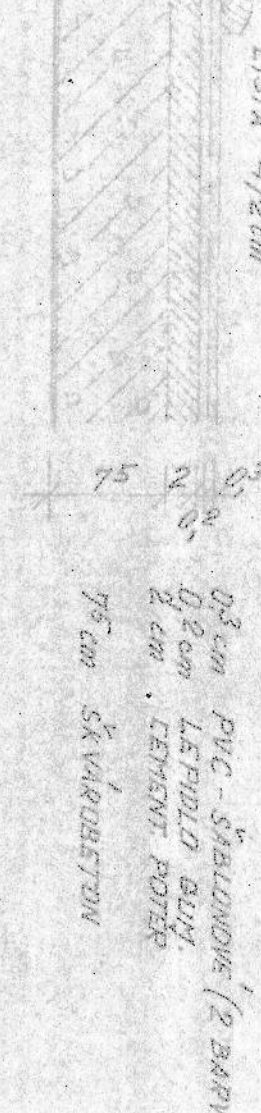 LIŠTA 4/2 cm
75 2 0,3
0,2
0,3 cm PVC - ŠABLONOVÉ (2 BARV
0,2 cm LEPIDLO BUM
2 cm CEMENT. POTĚR
75 cm ŠKVÁROBETON